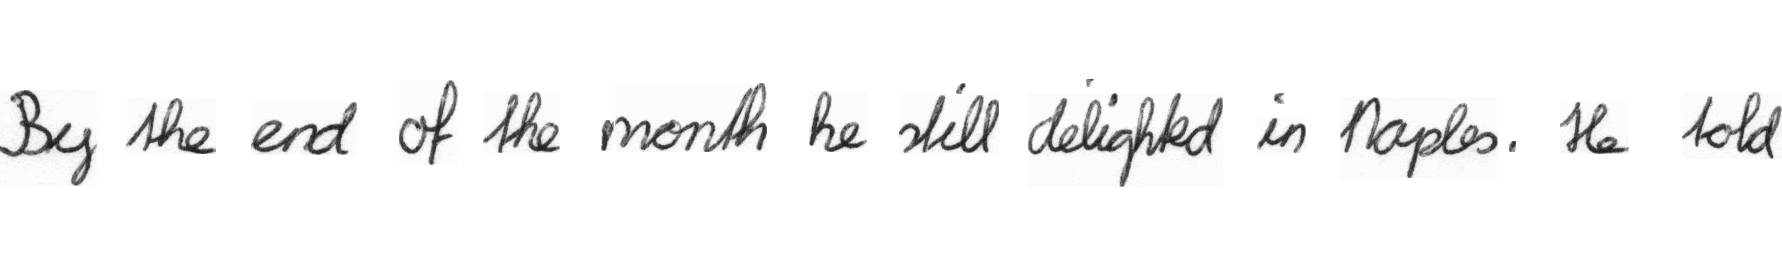 By the end of the month he still delighted in Naples. He told